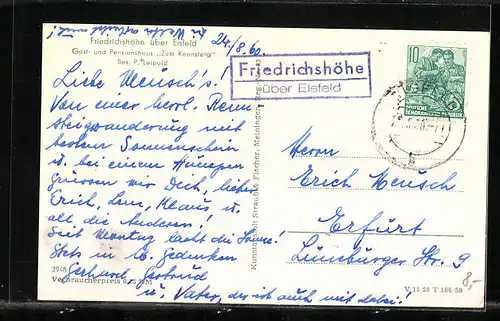 24./8.60.
Friedrichshöhe über Eisfeld
Gast- und Pensionshaus „Zum Rennsteig"
Bes. P. Leipold
Liebe Mensch's!
Von einer herrl. Renn
steigwanderung mit
bestem Sonnenschein
u. bei einem
grüssen wir Dich, lieber
Erich, Lens, Klaus u.
all die Anderen!
Seit Montag lacht die Sonne!
Stets in Gedenken
Gerhard, Gertrud
u. Vater, der ist auch mit dabei!
3948
Verbraucherpreis 0,20 DM
Kunstanstalt Straub & Fischer, Meiningen
Friedrichshöhe
über Eisfeld
10
DEUTSCHE
DEMOKRATISCHE REPUBLIK
Herrn
Erich Mensch
Erfurt
Lüneburger Str. 9
V 11 28 T 166 59
8,-